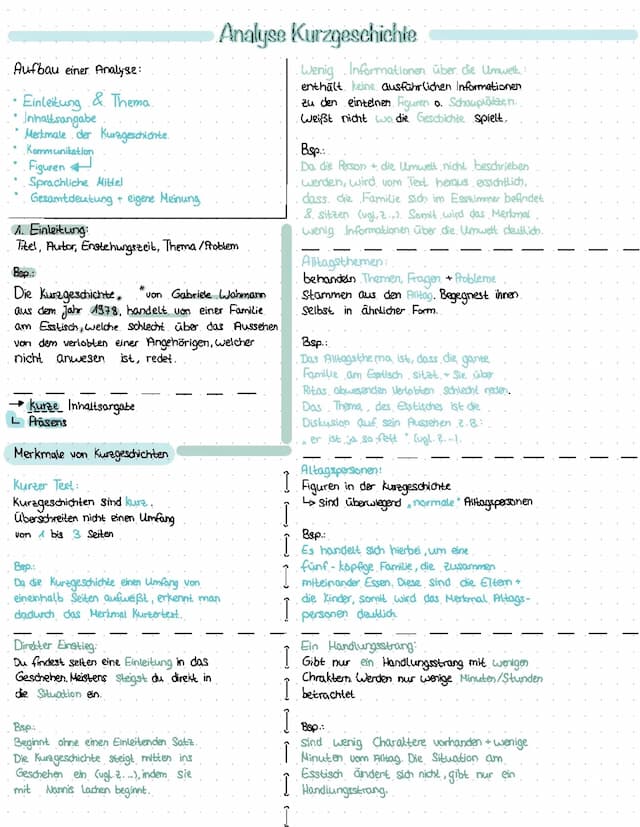 Analyse Kurzgeschichte
Aufbau einer Analyse:
* Einleitung & Thema
* Inhaltsangabe
* Merkmale der Kurzgeschichte
* Kommunikation
* Figuren
* Sprachliche Mittel
* Gesamtdeutung + eigene Meinung
1. Einleitung:
Titel, Autor, Enstehungszeit, Thema/Problem
Bsp.:
Die Kurzgeschichte„ "von Gabriele Wohmann
aus dem Jahr 1978, handelt von einer Familie
am Esstisch, welche schlecht über das Aussehen
von dem verlobten einer Angehörigen, welcher
nicht anwesen ist, redet.
→ Kurze Inhaltsangabe
↳ Präsens
Merkmale von Kurzgeschichten
Kurzer Text:
Kurzgeschichten sind kurz.
Überschreiten nicht einen Umfang
von 1 bis 3 Seiten
Bsp.:
Da die Kurzgeschichte einen Umfang von
eineinhalb Seiten aufweißt, erkennt man
dadurch das Merkmal Kurtertext.
Direkter Einstieg:
Du findest selten eine Einleitung in das
Geschehen. Meistens steigst du direkt in
die Situation ein.
Bsp.:
Beginnt ohne einen Einleitenden Satz.
Die Kurzgeschichte steigt mitten ins
Geschehen ein (vgl. Z. ...), indem sie
mit Nannis Lachen beginnt.
Wenig Informationen über die Umwelt:
enthält keine ausführlichen Informationen
zu den einzelnen Figuren o. Schauplätzen.
Weißt nicht wo die Geschichte spielt.
Bsp.:
Da die Person + die Umwelt nicht beschrieben
werden, wird vom Text heraus ersichtlich,
dass die Familie sich im Esszimmer befindet
& sitzen (vgl. Z. ...). Somit wird das Merkmal
wenig Informationen über die Umwelt deutlich.
Alltagsthemen:
behandeln Themen, Fragen + Probleme
Stammen aus den Alltag. Begegnest ihnen
selbst in ähnlicher Form.
Bsp.:
Das Alltagsthema ist, dass die ganze
Familie am Esstisch sitzt + Sie über
Ritas abwesenden Verlobten schlecht reden.
Das Thema, des Esstisches ist die
Diskusion auf sein Aussehen z.B.:
„er ist ja so fett" (vgl. Z. ...).
Alltagspersonen:
Figuren in der Kurzgeschichte
↳ sind überwiegend „normale" Alltagspersonen
Bsp.:
Es handelt sich hierbei, um eine
fünf-köpfige Familie, die zusammen
miteinander Essen. Diese sind die Eltern +
die Kinder, somit wird das Merkmal Alltags-
personen deutlich.
Ein Handlungsstrang:
Gibt nur ein Handlungsstrang mit wenigen
Charaktern. Werden nur wenige Minuten/Stunden
betrachtet
Bsp.:
sind wenig Charaktere vorhanden + wenige
Minuten vom Alltag. Die Situation am
Esstisch ändert sich nicht, gibt nur ein
Handlungsstrang.